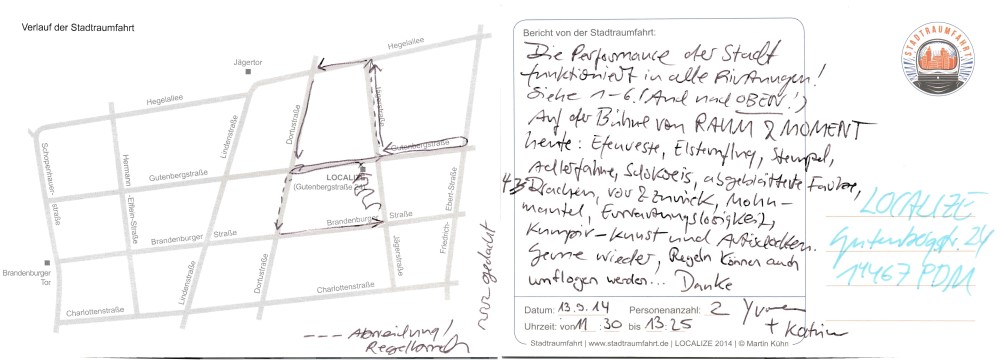 Verlauf der Stadtraumfahrt
Jägertor
Hegelallee
Hegelallee
Schopenhauer-
straße
Hermann
-Elflein-Straße
Lindenstraße
Dortustraße
Jägerstraße
Gutenbergstraße
Gutenbergstraße
LOCALIZE
(Gutenbergstraße 24)
Brandenburger Straße
Brandenburger Straße
Brandenburger
Tor
Lindenstraße
Dortustraße
Jägerstraße
Friedrich-
Ebert-Straße
Charlottenstraße
Charlottenstraße
gedacht
--- Abweichung/
Regelbruch
Bericht von der Stadtraumfahrt:
Die Performance der Stadt
funktioniert in alle Richtungen!
Siehe 1-6! (And nach OBEN!)
Auf der Bühne von RAUM & MOMENT
heute: Efeuweste, Elsternflug, Stempel,
Adlerfahne, abgeblätterte Farbe,
Drachen, vor & zurück, Mohn-
mantel, Erwartungslosigkeit,
Kumpir-Kunst und Artischocken.
Gerne wieder, Regeln können auch
umflogen werden... Danke
Datum: 13.9.14 Personenanzahl: 2 Yvonne
Uhrzeit: von 11:30 bis 13:25 + Katrin
Stadtraumfahrt | www.stadtraumfahrt.de | LOCALIZE 2014 | © Martin Kühn
STADTRAUMFAHRT
LOCALIZE
Gutenbergstr. 24
14467 PDM